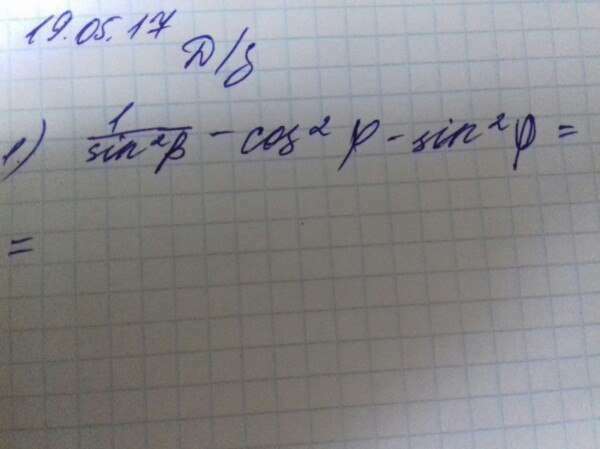 19.05.17
Д/з
1.) 1/sin²β - cos²φ - sin²φ =
=